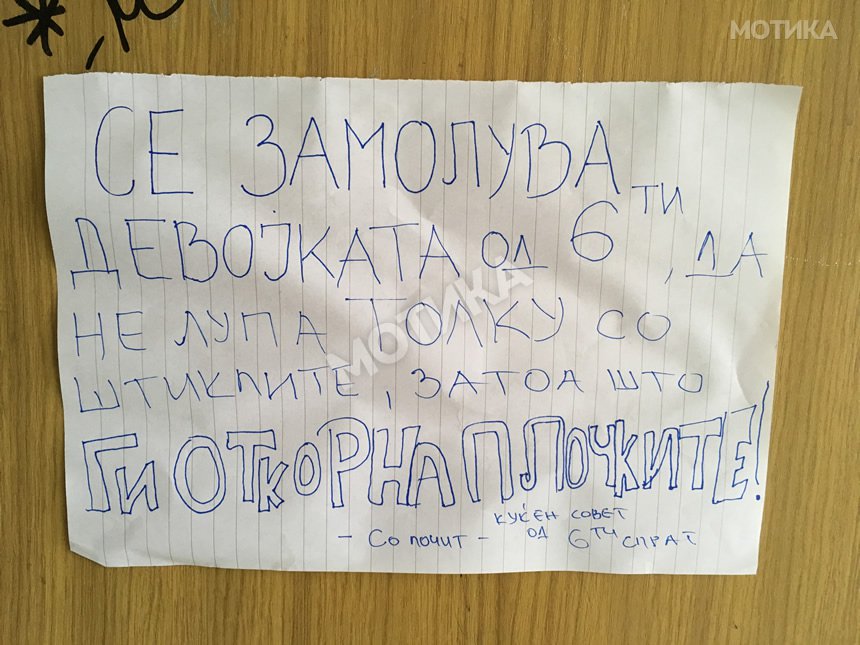 МОТИКА
СЕ ЗАМОЛУВА
ДЕВОЈКАТА ОД 6ТИ, ДА
НЕ ЛУПА ТОЛКУ СО
ШТИКЛИТЕ, ЗАТОА ШТО
ГИ ОТКОРНА ПЛОЧКИТЕ!
- СО ПОЧИТ - КУЌЕН СОВЕТ
ОД 6ТИ СПРАТ
МОТИКА